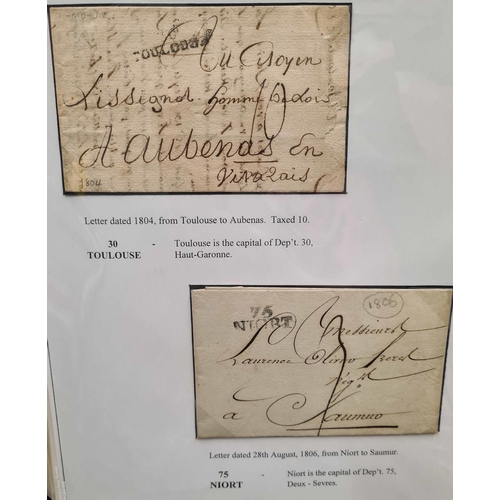 TOULOUSE
Au Citoyen
Lissignol homme de Lois
10
A aubenas En
Vivarais
1804
Letter dated 1804, from Toulouse to Aubenas. Taxed 10.
30 - Toulouse is the capital of Dep't. 30,
TOULOUSE Haut-Garonne.
75
NIORT
1806
Messieurs
Laurence
Négts
a Saumur
Letter dated 28th August, 1806, from Niort to Saumur.
75 - Niort is the capital of Dep't. 75,
NIORT Deux - Sevres.